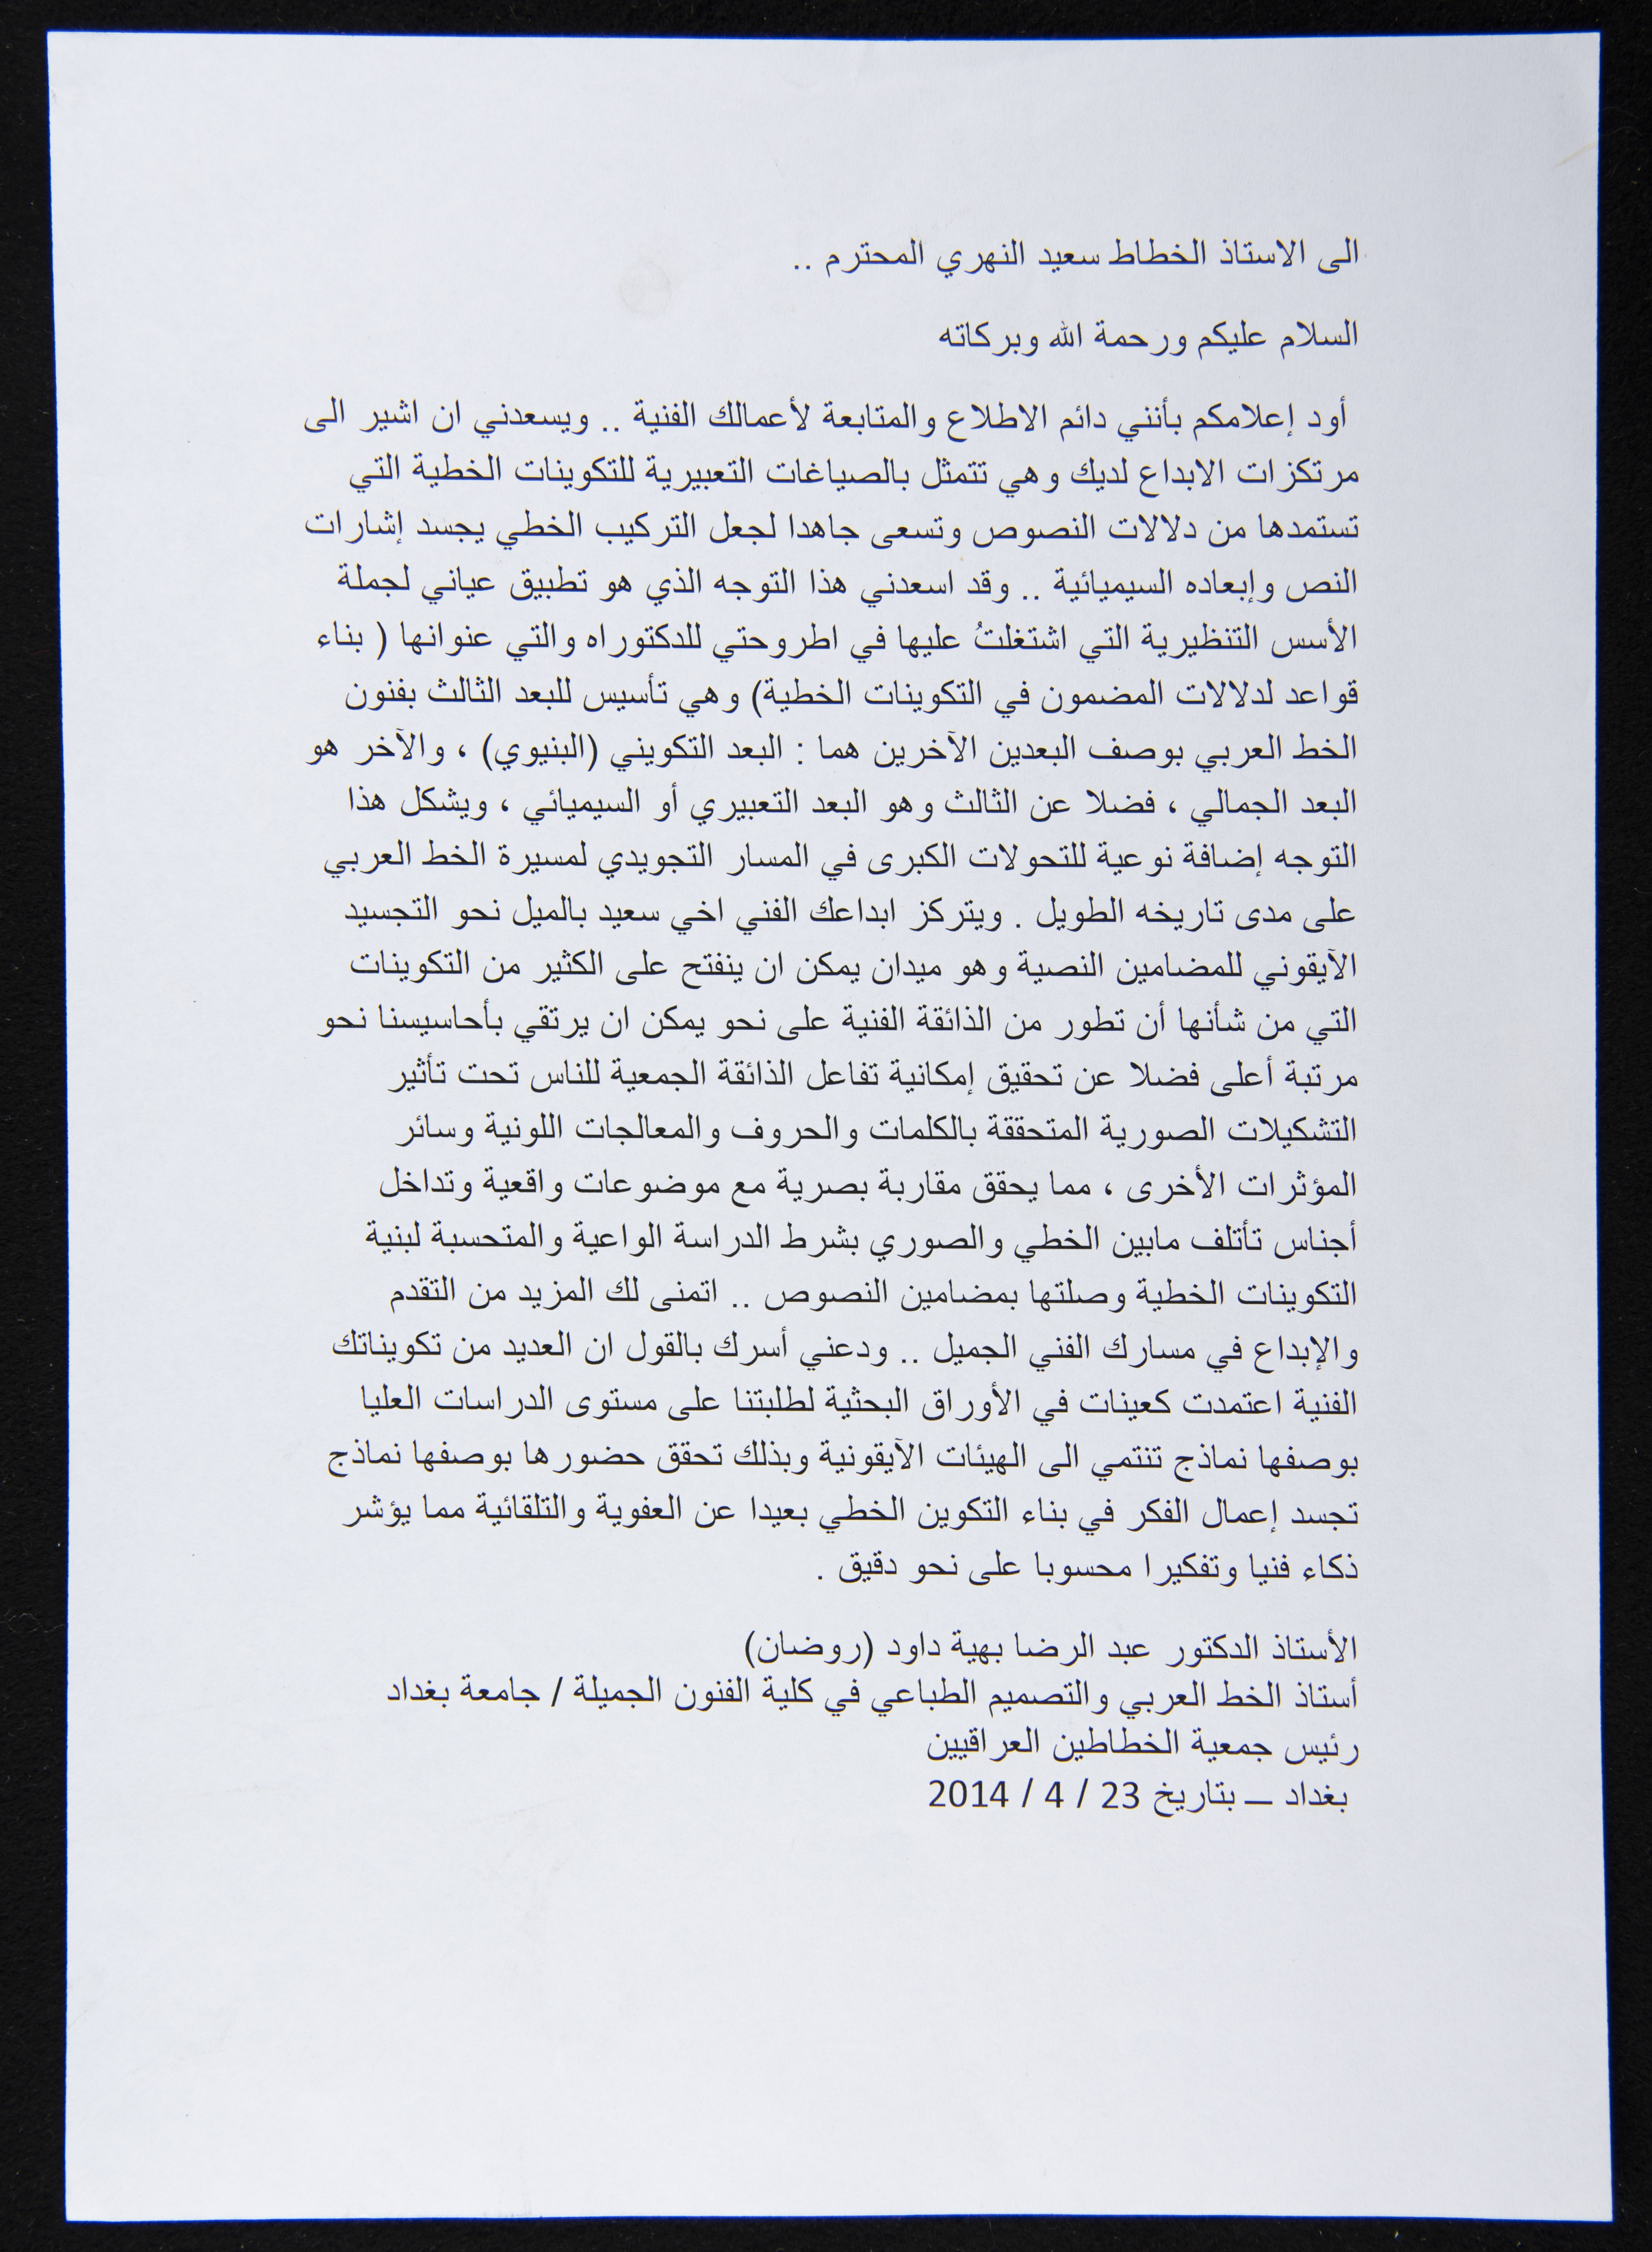 الى الاستاذ الخطاط سعيد النهري المحترم ..
السلام عليكم ورحمة الله وبركاته
أود إعلامكم بأنني دائم الاطلاع والمتابعة لأعمالك الفنية .. ويسعدني ان اشير الى
مرتكزات الابداع لديك وهي تتمثل بالصياغات التعبيرية للتكوينات الخطية التي
تستمدها من دلالات النصوص وتسعى جاهدا لجعل التركيب الخطي يجسد إشارات
النص وإبعاده السيميائية .. وقد اسعدني هذا التوجه الذي هو تطبيق عياني لجملة
الأسس التنظيرية التي اشتغلتُ عليها في اطروحتي للدكتوراه والتي عنوانها ( بناء
قواعد لدلالات المضمون في التكوينات الخطية) وهي تأسيس للبعد الثالث بفنون
الخط العربي بوصف البعدين الآخرين هما : البعد التكويني (البنيوي) ، والآخر هو
البعد الجمالي ، فضلا عن الثالث وهو البعد التعبيري أو السيميائي ، ويشكل هذا
التوجه إضافة نوعية للتحولات الكبرى في المسار التجويدي لمسيرة الخط العربي
على مدى تاريخه الطويل . ويتركز ابداعك الفني اخي سعيد بالميل نحو التجسيد
الآيقوني للمضامين النصية وهو ميدان يمكن ان ينفتح على الكثير من التكوينات
التي من شأنها أن تطور من الذائقة الفنية على نحو يمكن ان يرتقي بأحاسيسنا نحو
مرتبة أعلى فضلا عن تحقيق إمكانية تفاعل الذائقة الجمعية للناس تحت تأثير
التشكيلات الصورية المتحققة بالكلمات والحروف والمعالجات اللونية وسائر
المؤثرات الأخرى ، مما يحقق مقاربة بصرية مع موضوعات واقعية وتداخل
أجناس تأتلف مابين الخطي والصوري بشرط الدراسة الواعية والمتحسبة لبنية
التكوينات الخطية وصلتها بمضامين النصوص .. اتمنى لك المزيد من التقدم
والإبداع في مسارك الفني الجميل .. ودعني أسرك بالقول ان العديد من تكويناتك
الفنية اعتمدت كعينات في الأوراق البحثية لطلبتنا على مستوى الدراسات العليا
بوصفها نماذج تنتمي الى الهيئات الآيقونية وبذلك تحقق حضورها بوصفها نماذج
تجسد إعمال الفكر في بناء التكوين الخطي بعيدا عن العفوية والتلقائية مما يؤشر
ذكاء فنيا وتفكيرا محسوبا على نحو دقيق .
الأستاذ الدكتور عبد الرضا بهية داود (روضان)
أستاذ الخط العربي والتصميم الطباعي في كلية الفنون الجميلة / جامعة بغداد
رئيس جمعية الخطاطين العراقيين
بغداد ــ بتاريخ 23 / 4 / 2014